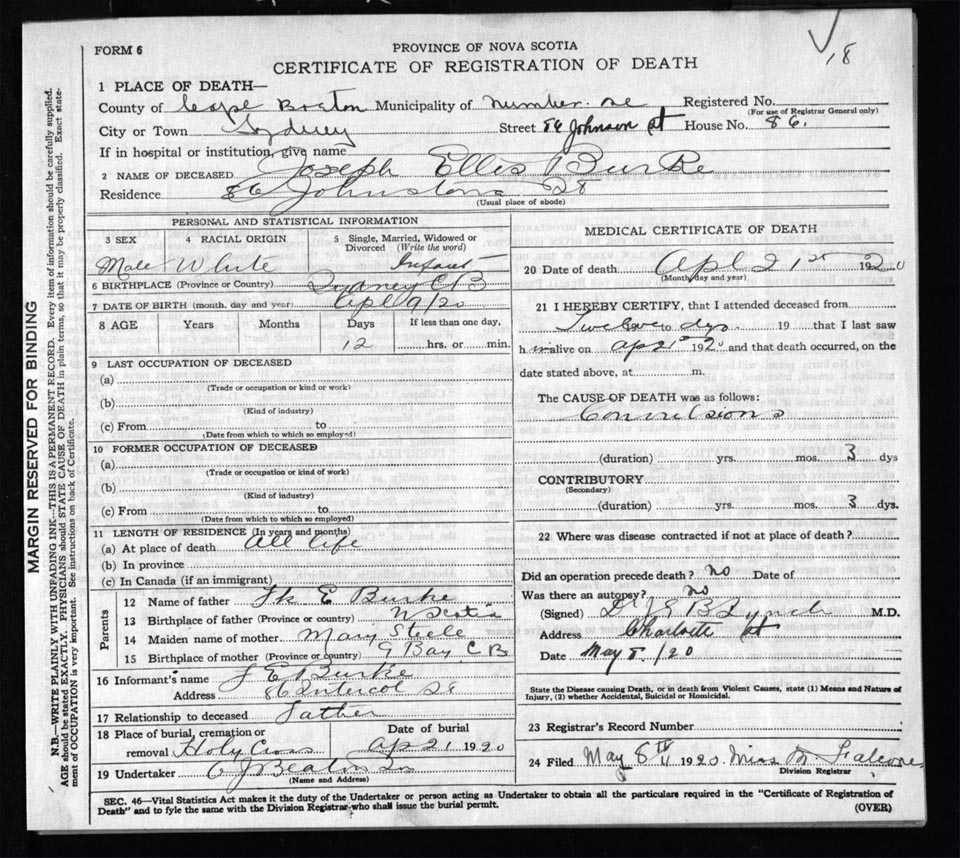 18
FORM 6
PROVINCE OF NOVA SCOTIA
CERTIFICATE OF REGISTRATION OF DEATH
1 PLACE OF DEATH—
County of Cape Breton Municipality of Number Registered No.
(For use of Registrar General only)
City or Town Sydney Street 86 Johnson st House No. 86.
If in hospital or institution, give name
2 NAME OF DECEASED Joseph Ellis Burke
Residence 86 Johnstone
(Usual place of abode)
PERSONAL AND STATISTICAL INFORMATION
3 SEX 4 RACIAL ORIGIN 5 Single, Married, Widowed or
Divorced (Write the word)
Male White Infant
6 BIRTHPLACE (Province or Country) Sydney C B
7 DATE OF BIRTH (month, day and year) Apl 9/20
8 AGE Years Months Days If less than one day,
12 hrs. or min.
9 LAST OCCUPATION OF DECEASED
(a)
(Trade or occupation or kind or work)
(b)
(Kind of industry)
(c) From to
(Date from which to which so employed)
10 FORMER OCCUPATION OF DECEASED
(a)
(Trade or occupation or kind of work)
(b)
(Kind of industry)
(c) From to
(Date from which to which so employed)
11 LENGTH OF RESIDENCE (In years and months)
(a) At place of death All life
(b) In province
(c) In Canada (if an immigrant)
Parents
12 Name of father E Burke
13 Birthplace of father (Province or country) N Scotia
14 Maiden name of mother Mary Steele
15 Birthplace of mother (Province or country) G Bay C B
16 Informant's name J E Burke
Address 86 Intercol
17 Relationship to deceased Father
18 Place of burial, cremation or Date of burial
removal Holy Cross Apr 21 1920
19 Undertaker J Beaton
(Name and Address)
MEDICAL CERTIFICATE OF DEATH
20 Date of death Apl 21st 1920
(Month, day and year)
21 I HEREBY CERTIFY, that I attended deceased from
Twelve to dys. 19 that I last saw
h im alive on Ap 21st 1920 and that death occurred, on the
date stated above, at m.
The CAUSE OF DEATH was as follows:
Convulsions
(duration) yrs. mos. 3 dys
CONTRIBUTORY
(Secondary)
(duration) yrs. mos. 3 dys.
22 Where was disease contracted if not at place of death?
Did an operation precede death? no Date of
Was there an autopsy? no
(Signed) Dr J E B Lynch M.D.
Address Charlotte st
Date May 8/20
State the Disease causing Death, or in death from Violent Causes, state (1) Means and Nature of
Injury, (2) whether Accidental, Suicidal or Homicidal.
23 Registrar's Record Number
24 Filed May 8th 1920 Miss M.
Division Registrar
SEC. 46—Vital Statistics Act makes it the duty of the Undertaker or person acting as Undertaker to obtain all the particulars required in the "Certificate of Registration of
Death" and to fyle the same with the Division Registrar who shall issue the burial permit.
(OVER)
MARGIN RESERVED FOR BINDING
N.B.—WRITE PLAINLY WITH UNFADING INK—THIS IS A PERMANENT RECORD. Every item of information should be carefully supplied.
AGE should be stated EXACTLY. PHYSICIANS should STATE CAUSE OF DEATH in plain terms, so that it may be properly classified. Exact state-
ment of OCCUPATION is very important. See instructions on back of Certificate.